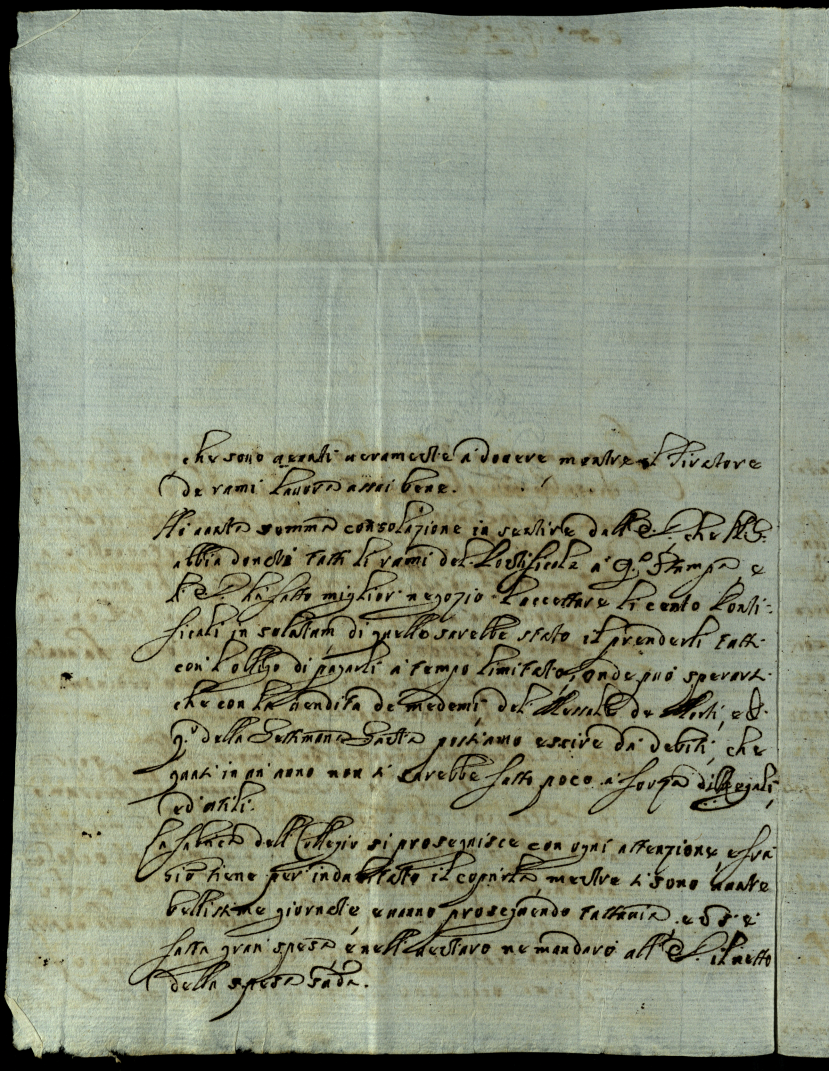 che sono aventi veramente à dovere mentre il Tiratore
de rami lavora assai bene.
Hò avuta somma consolazione in sentire dall' che
abbia donati tutti li rami del Pontificale à e
hà fatto miglior negozio l'accettare li cento Ponti-
ficali in di quello sarebbe stato il prenderli tutti
con l'obligo di pagarli à tempo limitato, onde può sperarsi
che con la vendita de medemi del Messale de Morti, e
della Settimana Santa possiamo escire dà debiti, che
quasi in un anno non si sarebbe fatto poco à forza di Regali
ed utili.
La fabrica dell Collegio si proseguisce con ogni attenzione e frà
tiene per il mentre si sono avute
bellissime giornate e vanno proseguendo tuttavia. e si è
fatta gran spesa e nell' ne mandarò all' il netto
della spesa